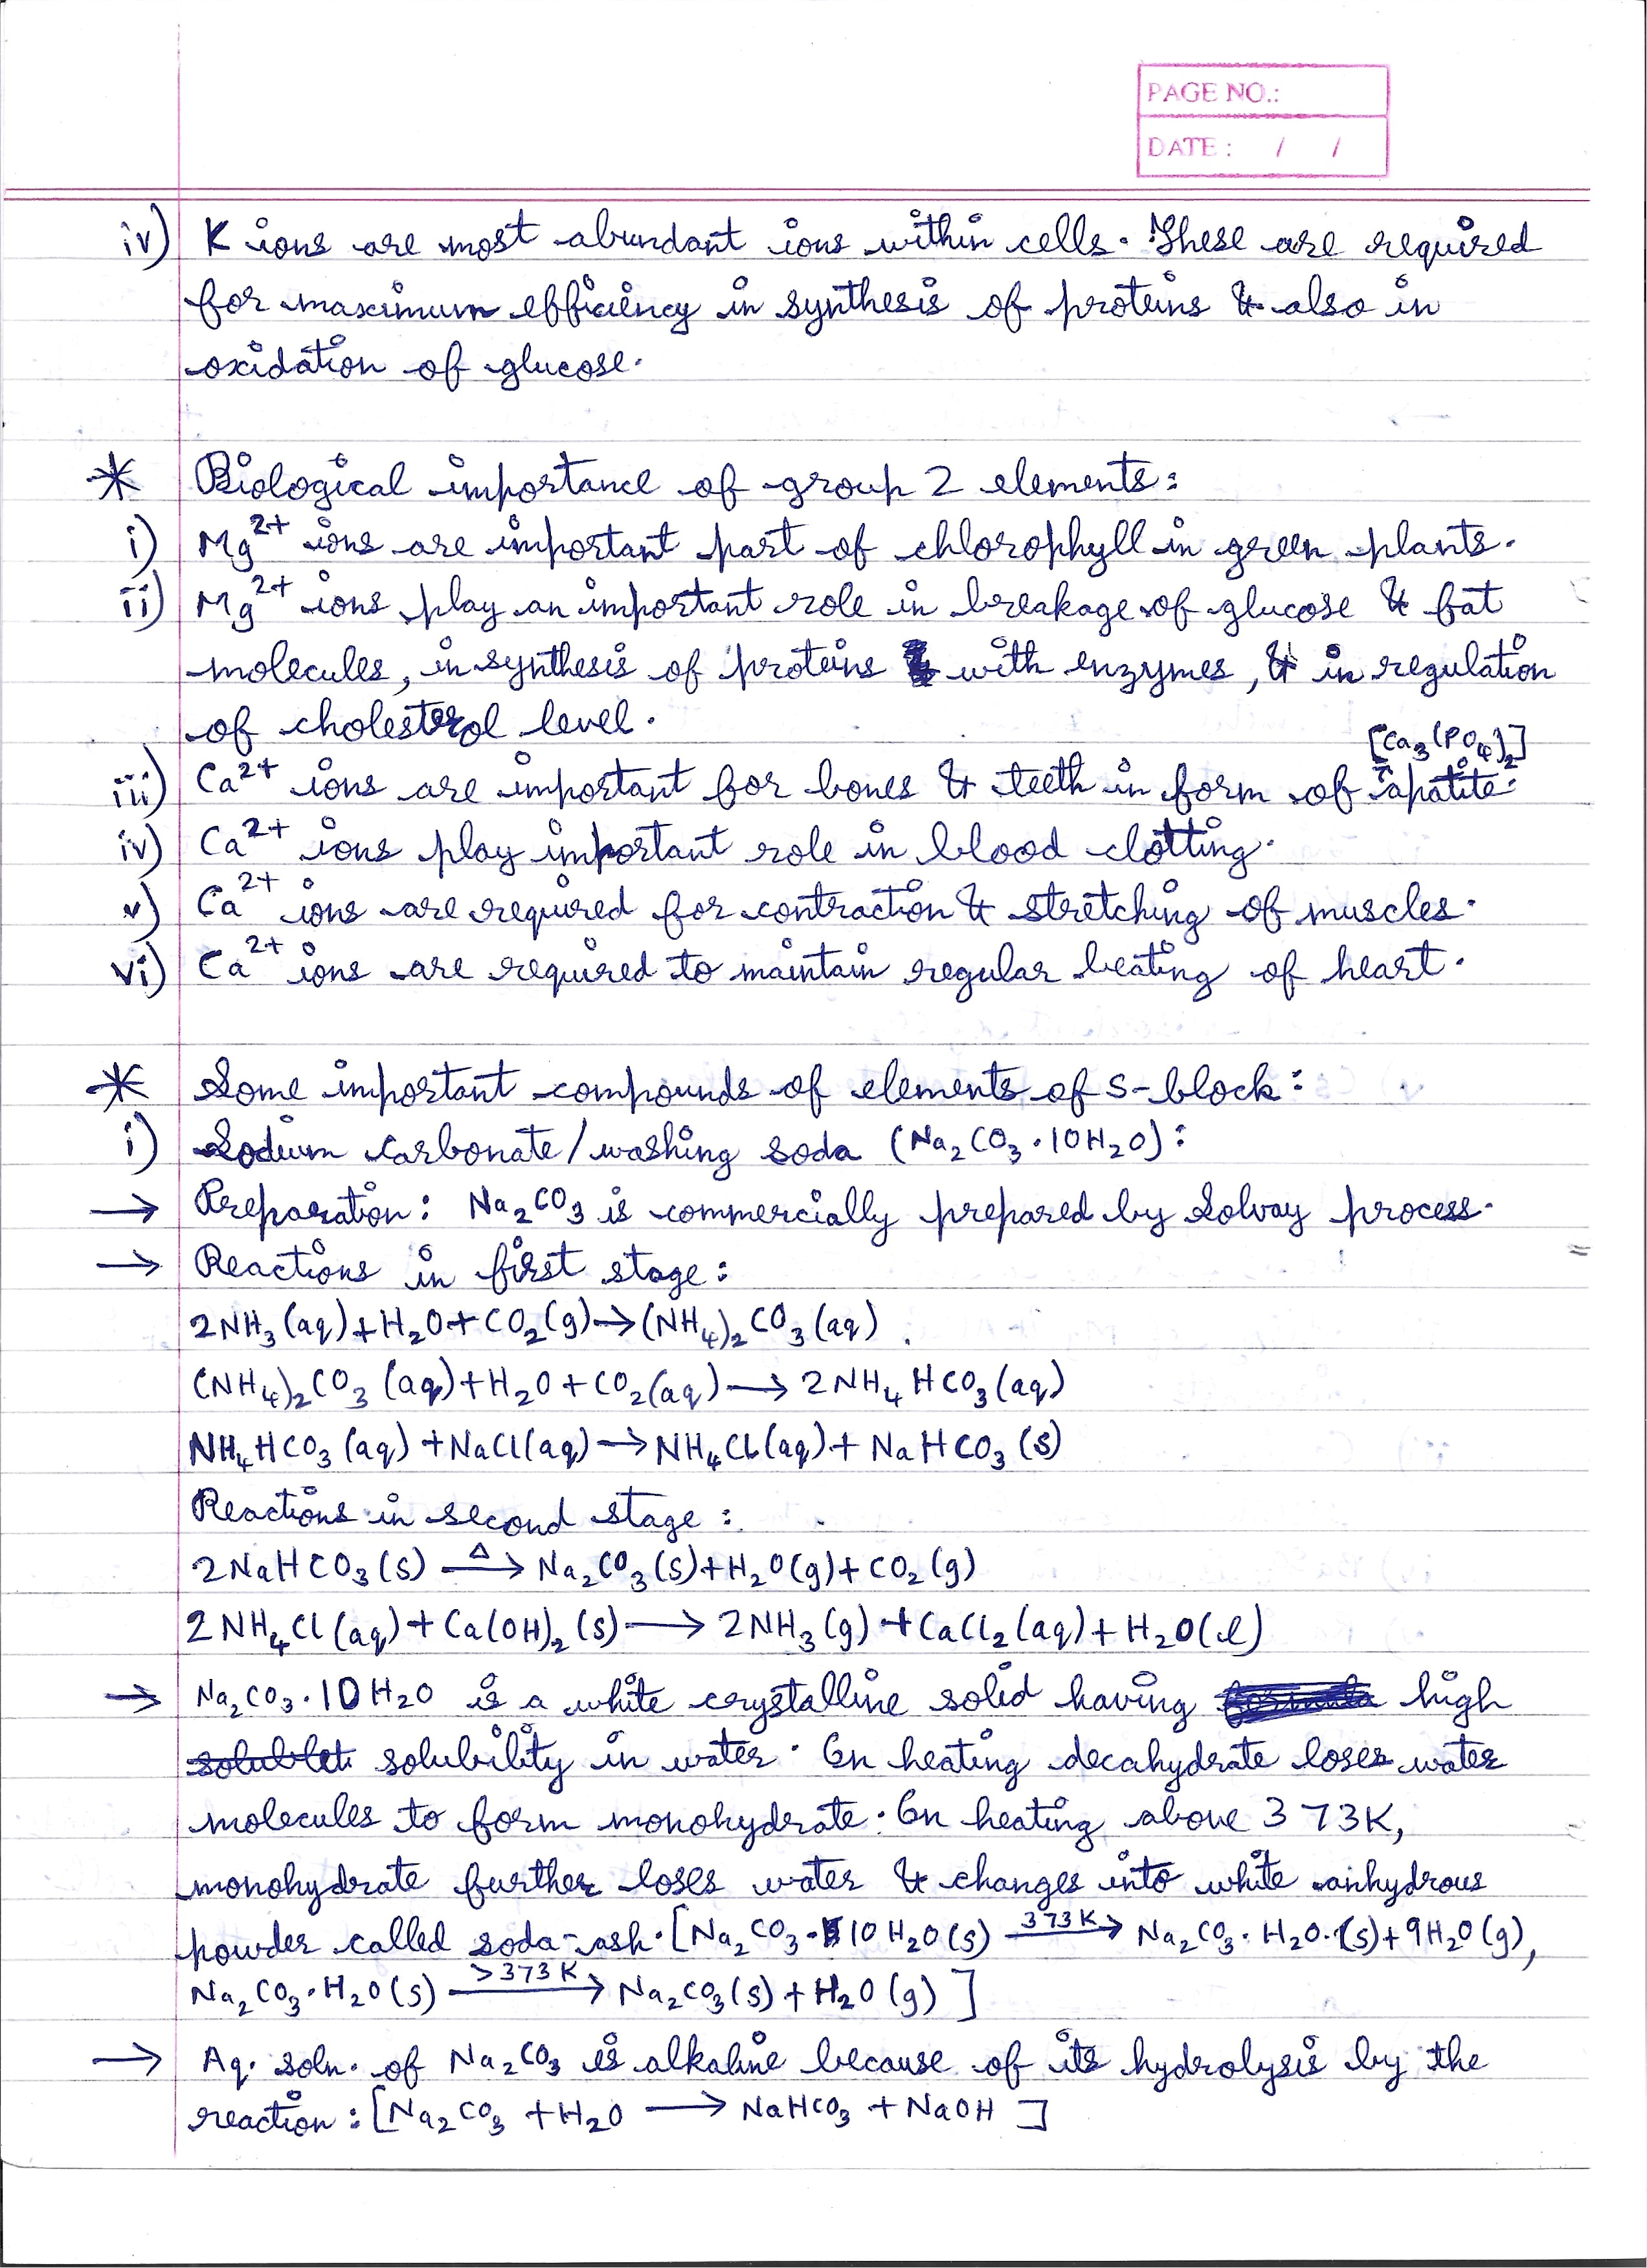 PAGE NO.:
DATE : / /
iv) K ions are most abundant ions within cells. These are required
for maximum efficiency in synthesis of proteins & also in
oxidation of glucose.
* Biological importance of group 2 elements:
i) Mg²⁺ ions are important part of chlorophyll in green plants.
ii) Mg²⁺ ions play an important role in breakage of glucose & fat
molecules, in synthesis of proteins with enzymes, & in regulation
of cholesterol level.
[Ca₃(PO₄)₂]
iii) Ca²⁺ ions are important for bones & teeth in form of apatite.
iv) Ca²⁺ ions play important role in blood clotting.
v) Ca²⁺ ions are required for contraction & stretching of muscles.
vi) Ca²⁺ ions are required to maintain regular beating of heart.
* Some important compounds of elements of s-block:
i) Sodium carbonate/washing soda (Na₂CO₃·10H₂O):
→ Preparation: Na₂CO₃ is commercially prepared by Solvay process.
→ Reactions in first stage:
2NH₃(aq)+H₂O+CO₂(g)→(NH₄)₂CO₃(aq)
(NH₄)₂CO₃(aq)+H₂O+CO₂(aq)→2NH₄HCO₃(aq)
NH₄HCO₃(aq)+NaCl(aq)→NH₄Cl(aq)+NaHCO₃(s)
Reactions in second stage:
2NaHCO₃(s) —Δ→ Na₂CO₃(s)+H₂O(g)+CO₂(g)
2NH₄Cl(aq)+Ca(OH)₂(s)→2NH₃(g)+CaCl₂(aq)+H₂O(l)
→ Na₂CO₃·10H₂O is a white crystalline solid having high
solubility in water. On heating decahydrate loses water
molecules to form monohydrate. On heating above 373K,
monohydrate further loses water & changes into white anhydrous
powder called soda-ash. [Na₂CO₃·10H₂O(s) —373K→ Na₂CO₃·H₂O(s)+9H₂O(g),
Na₂CO₃·H₂O(s) —>373K→ Na₂CO₃(s)+H₂O(g)]
→ Aq. soln. of Na₂CO₃ is alkaline because of its hydrolysis by the
reaction: [Na₂CO₃+H₂O → NaHCO₃+NaOH]